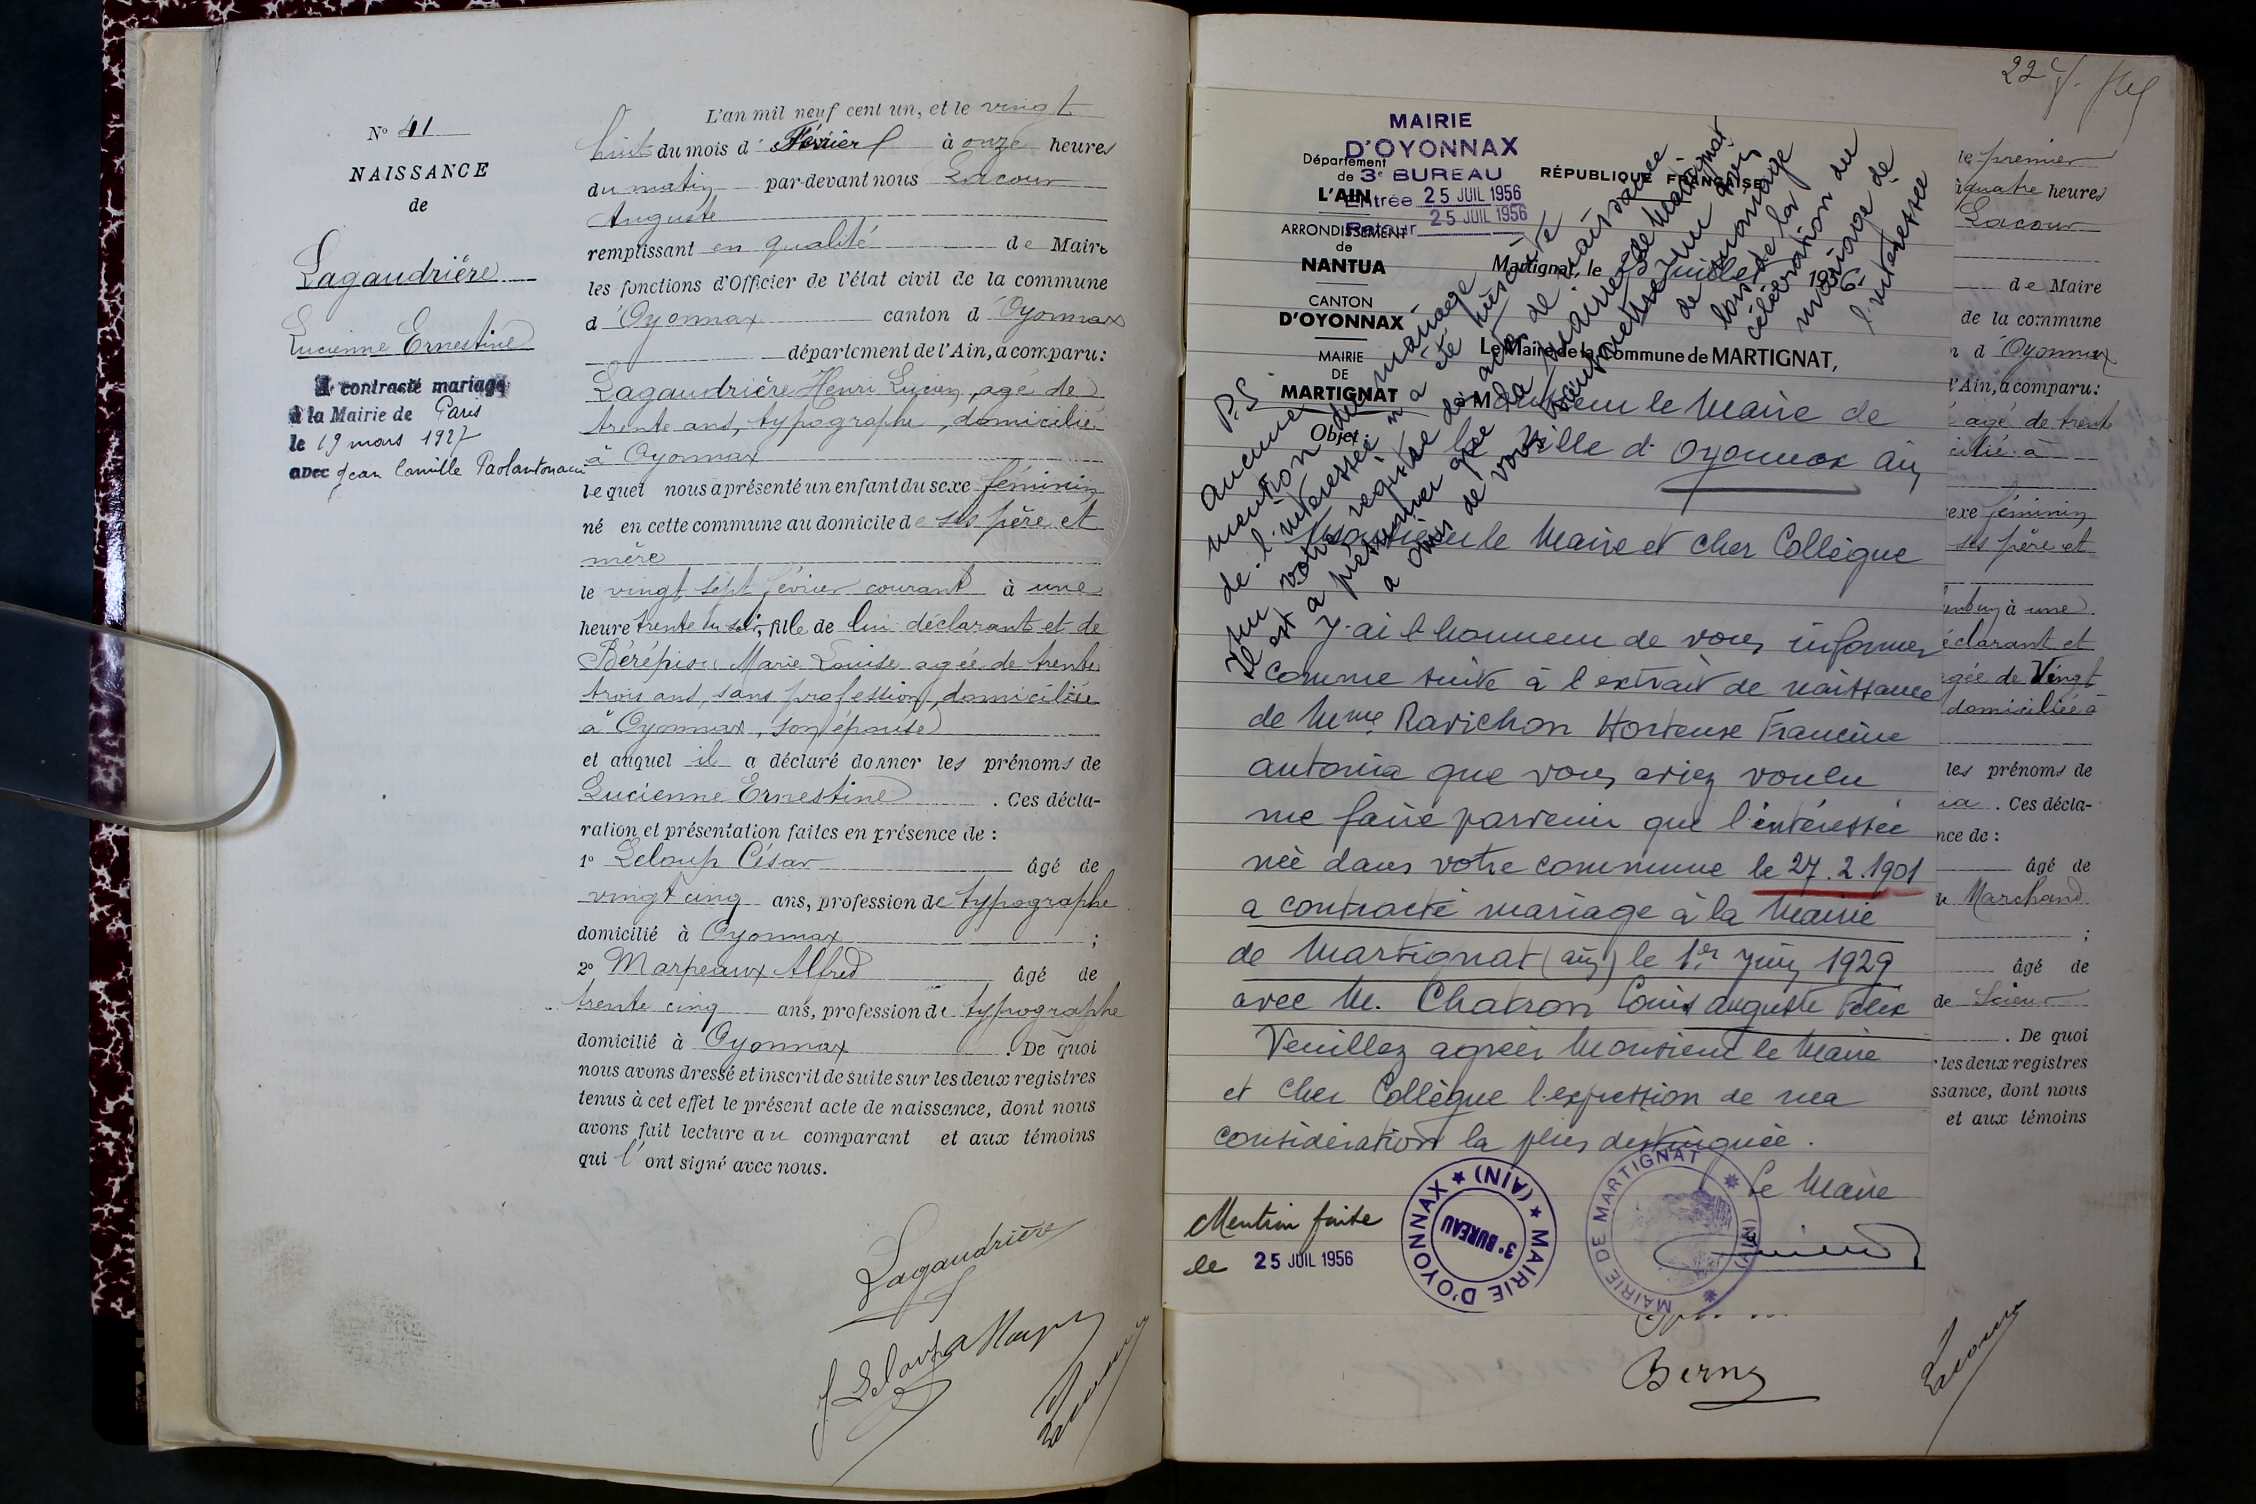 N° 41
NAISSANCE
de
Lagaudrière
Lucienne Ernestine
A contracté mariage
à la Mairie de Paris
le 19 mars 1927
avec Jean Camille Paolantonacci
L'an mil neuf cent un, et le vingt
huit du mois d' Février à onze heures
du matin par-devant nous Lacour
Auguste
remplissant en qualité de Maire
les fonctions d'Officier de l'état civil de la commune
d'Oyonnax canton d'Oyonnax
département de l'Ain, a comparu:
Lagaudrière Henri Lucien, agé de
trente ans, typographe, domicilié
à Oyonnax
lequel nous a présenté un enfant du sexe féminin
né en cette commune au domicile de ses père et
mère
le vingt sept février courant à une
heure trente du soir, fille de lui déclarant et de
Marie Louise agée de trente
trois ans, sans profession, domiciliée
à Oyonnax, son épouse
et auquel il a déclaré donner les prénoms de
Lucienne Ernestine . Ces décla-
ration et présentation faites en présence de :
1° Leloup César âgé de
vingt cinq ans, profession de typographe
domicilié à Oyonnax ;
2° Marpeaux Alfred âgé de
trente cinq ans, profession de typographe
domicilié à Oyonnax . De quoi
nous avons dressé et inscrit de suite sur les deux registres
tenus à cet effet le présent acte de naissance, dont nous
avons fait lecture au comparant et aux témoins
qui l'ont signé avec nous.
Lagaudrière
Leloup
Lacour
22
MAIRIE
D'OYONNAX
3e BUREAU
Entrée 25 JUIL 1956
Retour 25 JUIL 1956
Département
de
L'AIN
ARRONDISSEMENT
de
NANTUA
CANTON
D'OYONNAX
MAIRIE
DE
MARTIGNAT
Objet :
RÉPUBLIQUE FRANÇAISE
Martignat, le Juillet 1956
Le Maire de la Commune de MARTIGNAT,
à Monsieur le Maire de
la Ville d'Oyonnax Ain
Monsieur le Maire et cher Collègue
J'ai l'honneur de vous informer
comme suite à l'extrait de naissance
de Mme Ravichon Hortense Francine
Antonia que vous aviez voulu
me faire parvenir que l'intéressée
née dans votre commune le 27.2.1901
a contracté mariage à la Mairie
de Martignat (Ain) le 1er Juin 1929
avec M. Chatron Louis Auguste Felix
Veuillez agréer Monsieur le Maire
et Cher Collègue l'expression de ma
considération la plus distinguée.
Le Maire
P.S
aucune
mention du mariage
de l'intéressée n'a été inscrite
sur votre registre des actes de naissance
Il est à présumer que la Mairie de Martignat
a omis de vous transmettre un avis
de mariage
lors de la
célébration du
mariage de
l'intéressée
Mention faite
le 25 JUIL 1956
MAIRIE D'OYONNAX ★ (AIN) ★
3e BUREAU
MAIRIE DE MARTIGNAT
(AIN)
le premier
quatre heures
Lacour
de Maire
de la commune
d'Oyonnax
l'Ain, a comparu:
agé de trente
cilié à
exe féminin
ses père et
à une
éclarant et
gée de Vingt
domiciliée à
les prénoms de
ia . Ces décla-
nce de :
âgé de
Marchand
;
âgé de
de Scieur
. De quoi
r les deux registres
ssance, dont nous
et aux témoins
Berny
Lacour